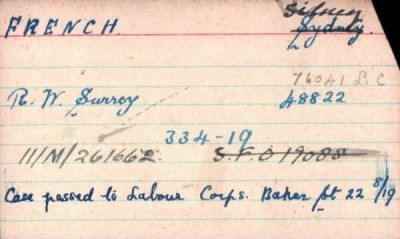 Sidney
FRENCH. Sydney.
76041 L.C
R. W. Surrey 48822
334-19
11/M/261662. S.F.O 19088
Case passed to Labour Corps. Baker St 22 8/19